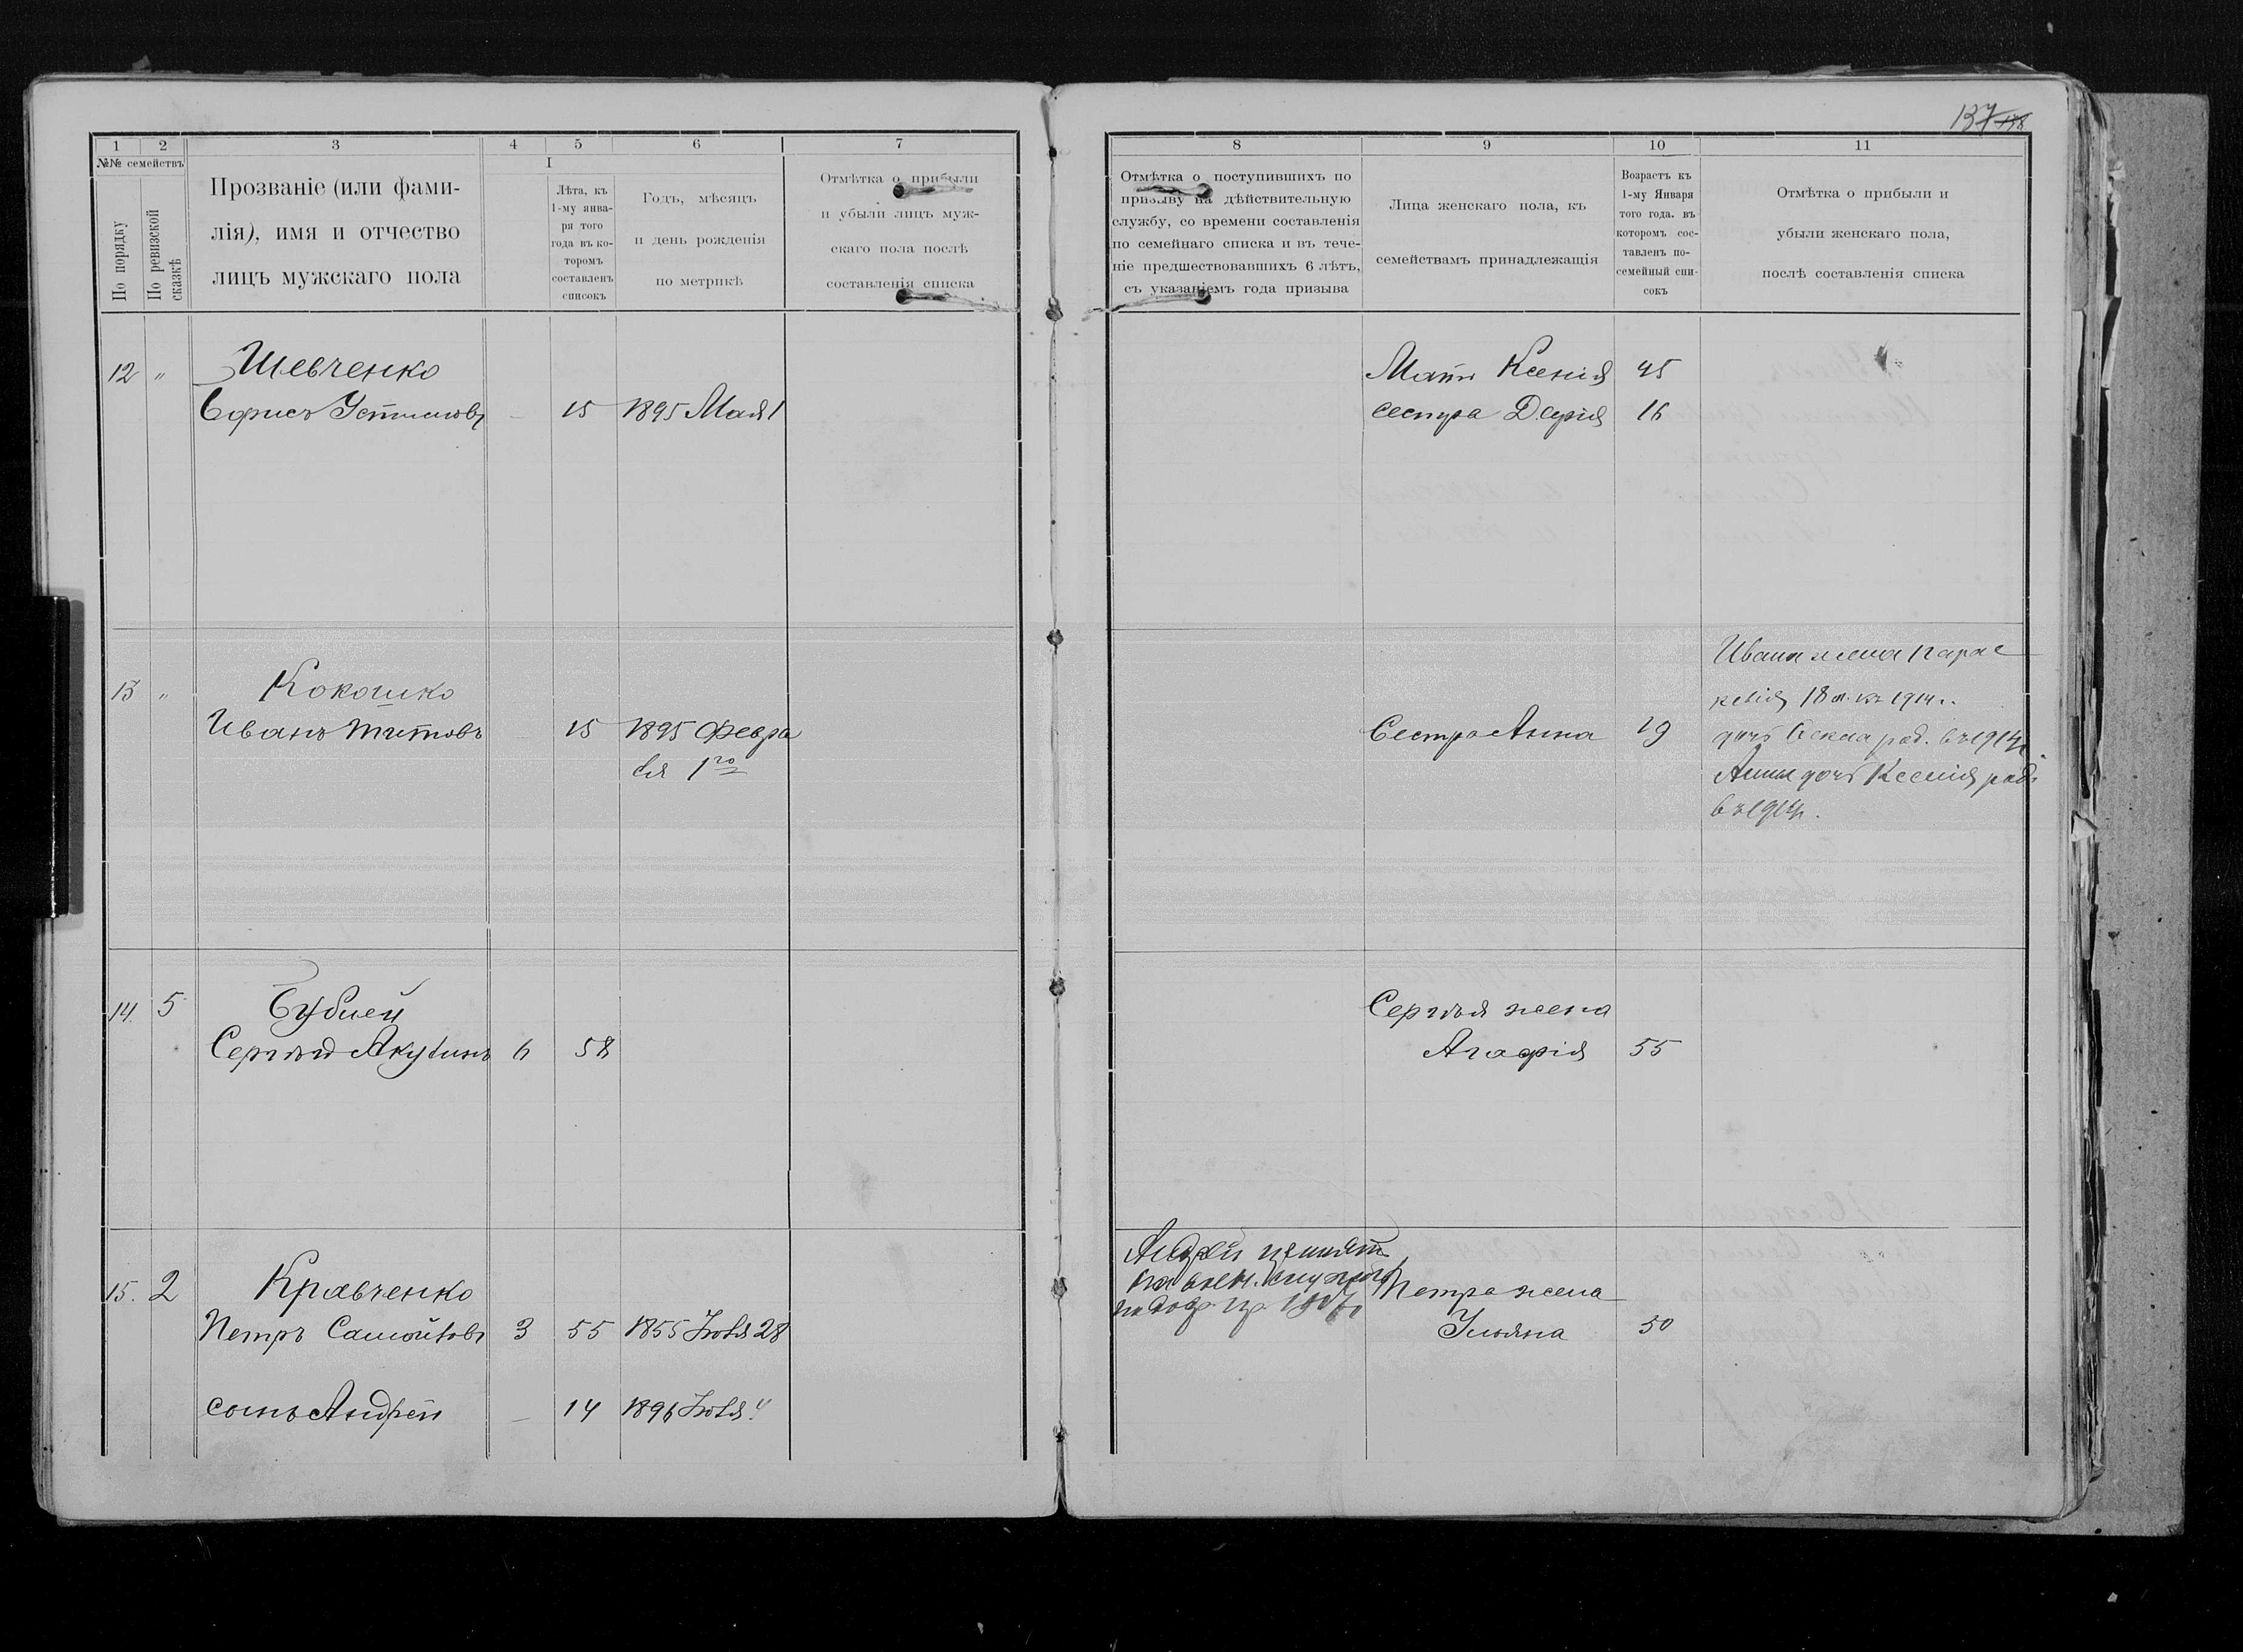 137 138
1 2 3 4 5 6 7
№№ семействъ
I
По порядку
По ревизской сказкѣ
Прозваніе (или фами-
лія), имя и отчество
лицъ мужскаго пола
Лѣта, къ
1-му янва-
ря того
года въ ко-
торомъ
составленъ
списокъ
Годъ, мѣсяцъ
и день рожденія
по метрикѣ
Отмѣтка о прибыли
и убыли лицъ муж-
скаго пола послѣ
составленія списка
8 9 10 11
Отмѣтка о поступившихъ по
призыву на дѣйствительную
службу, со времени составленія
по семейнаго списка и въ тече-
ніе предшествовавшихъ 6 лѣтъ,
съ указаніемъ года призыва
Лица женскаго пола, къ
семействамъ принадлежащія
Возрастъ къ
1-му Января
того года. въ
которомъ сос-
тавленъ по-
семейный спи-
сокъ
Отмѣтка о прибыли и
убыли женскаго пола,
послѣ составленія списка
12 " Шевченко
Борисъ Устиновъ - 15 1895 Мая 1
Мать Ксенія 45
сестра Дарія 16
13 " Кокошко
Иванъ Титовъ - 15 1895 Февра
ля 1го
Сестра Анна 19
Ивана жена Парас
кевія 18 л. къ 1914 г.
дочь род. въ 1914
Анны дочь Ксенія род.
въ 1914.
14. 5 Бубней
Сергѣй Акулинъ 6 58
Сергѣя жена
Агафія 55
15. 2 Кравченко
Петръ Самойловъ 3 55 1855 Іюля 28
сынъ Андрей - 14 1896 Іюля 4
Андрей принят
на воен. службу
Петра жена
Ульяна 50